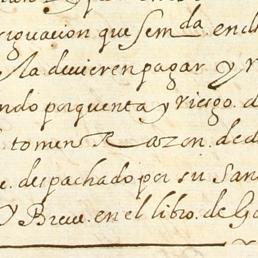 riguacion que se m.da en el
la deuieren pagar y r
ndo por quenta y riesgo. d
tomen Razon. de d
e. despachado por su San
Y Breue. en el libro. de Go